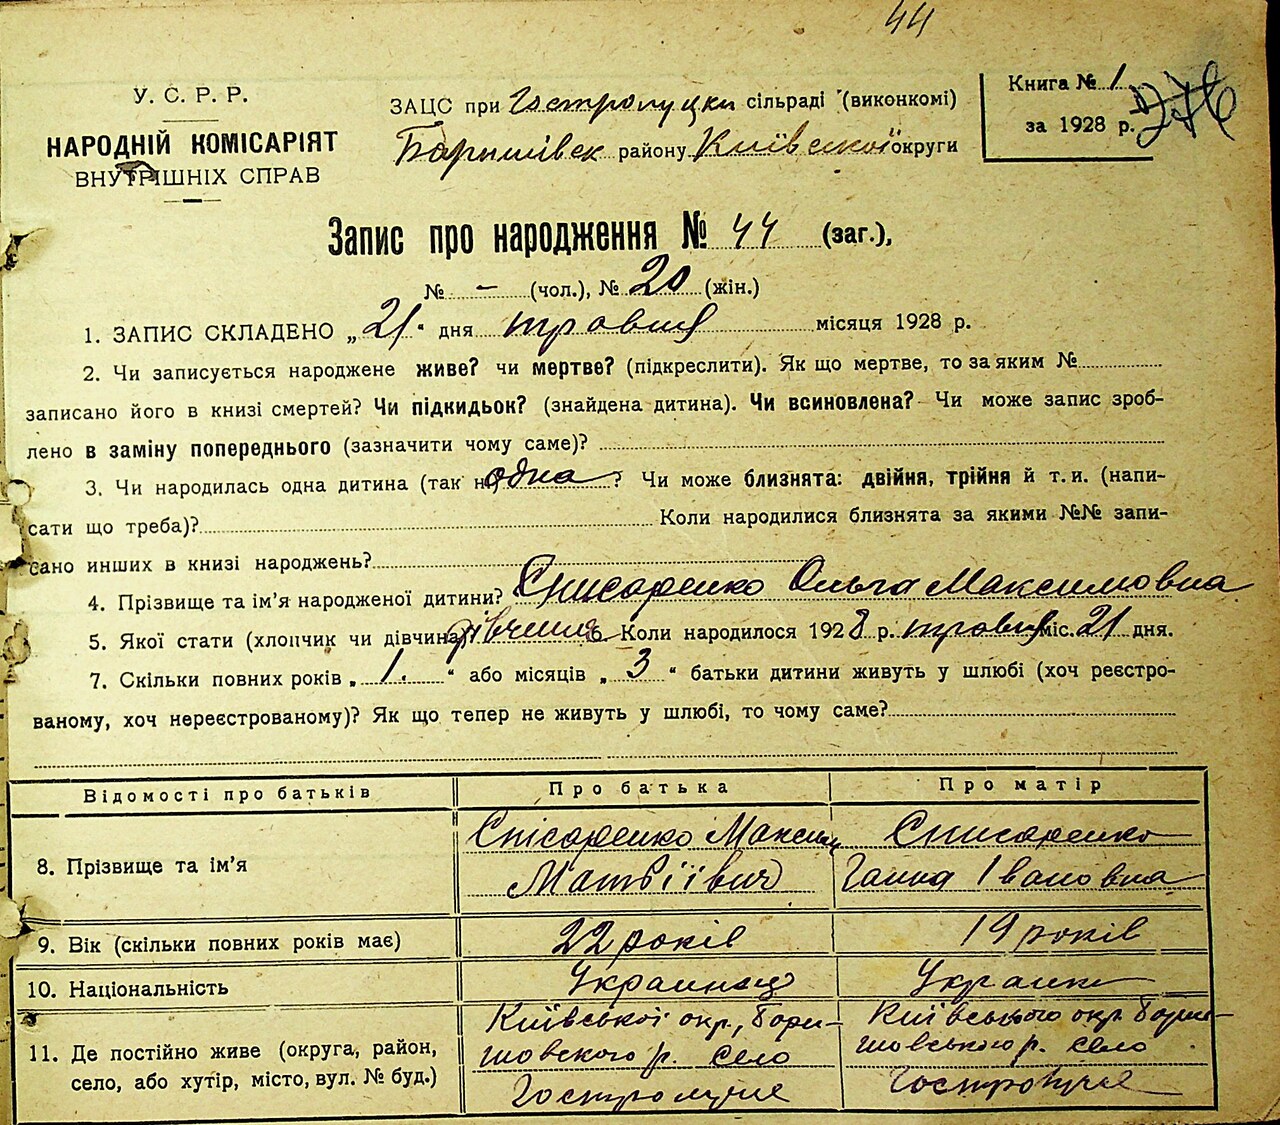 44
У. С. Р. Р.
НАРОДНІЙ КОМІСАРІЯТ
ВНУТРІШНІХ СПРАВ
ЗАЦС при Гостролуцки сільраді (виконкомі)
Баришівск району Київської округи
Книга № 1
за 1928 р.
Запис про народження № 44 (заг.),
№ - (чол.), № 20 (жін.)
1. ЗАПИС СКЛАДЕНО „21" дня травня місяця 1928 р.
2. Чи записується народжене живе? чи мертве? (підкреслити). Як що мертве, то за яким №
записано його в книзі смертей? Чи підкидьок? (знайдена дитина). Чи всиновлена? Чи може запис зроб-
лено в заміну попереднього (зазначити чому саме)?
3. Чи народилась одна дитина (так ні) одна ? Чи може близнята: двійня, трійня й т. и. (напи-
сати що треба)? Коли народилися близнята за якими №№ запи-
сано инших в книзі народжень?
4. Прізвище та ім'я народженої дитини? Списаренко Ольга Максимовна
5. Якої стати (хлопчик чи дівчина) дівчина 6. Коли народилося 1928 р. травня міс. 21 дня.
7. Скільки повних років „ 1. " або місяців „ 3 " батьки дитини живуть у шлюбі (хоч реєстро-
ваному, хоч нереєстрованому)? Як що тепер не живуть у шлюбі, то чому саме?
Відомості про батьків Про батька Про матір
8. Прізвище та ім'я
Спісаренко Максим
Матвіївич
Списаренко
Ганна Івановна
9. Вік (скільки повних років має) 22 років 19 років
10. Національність Украинец Украинк
11. Де постійно живе (округа, район,
село, або хутір, місто, вул. № буд.)
Київської окр., Бори-
шовского р. село
Гостролуче
Київського окр Бори-
шовського р. село
Гостролуче